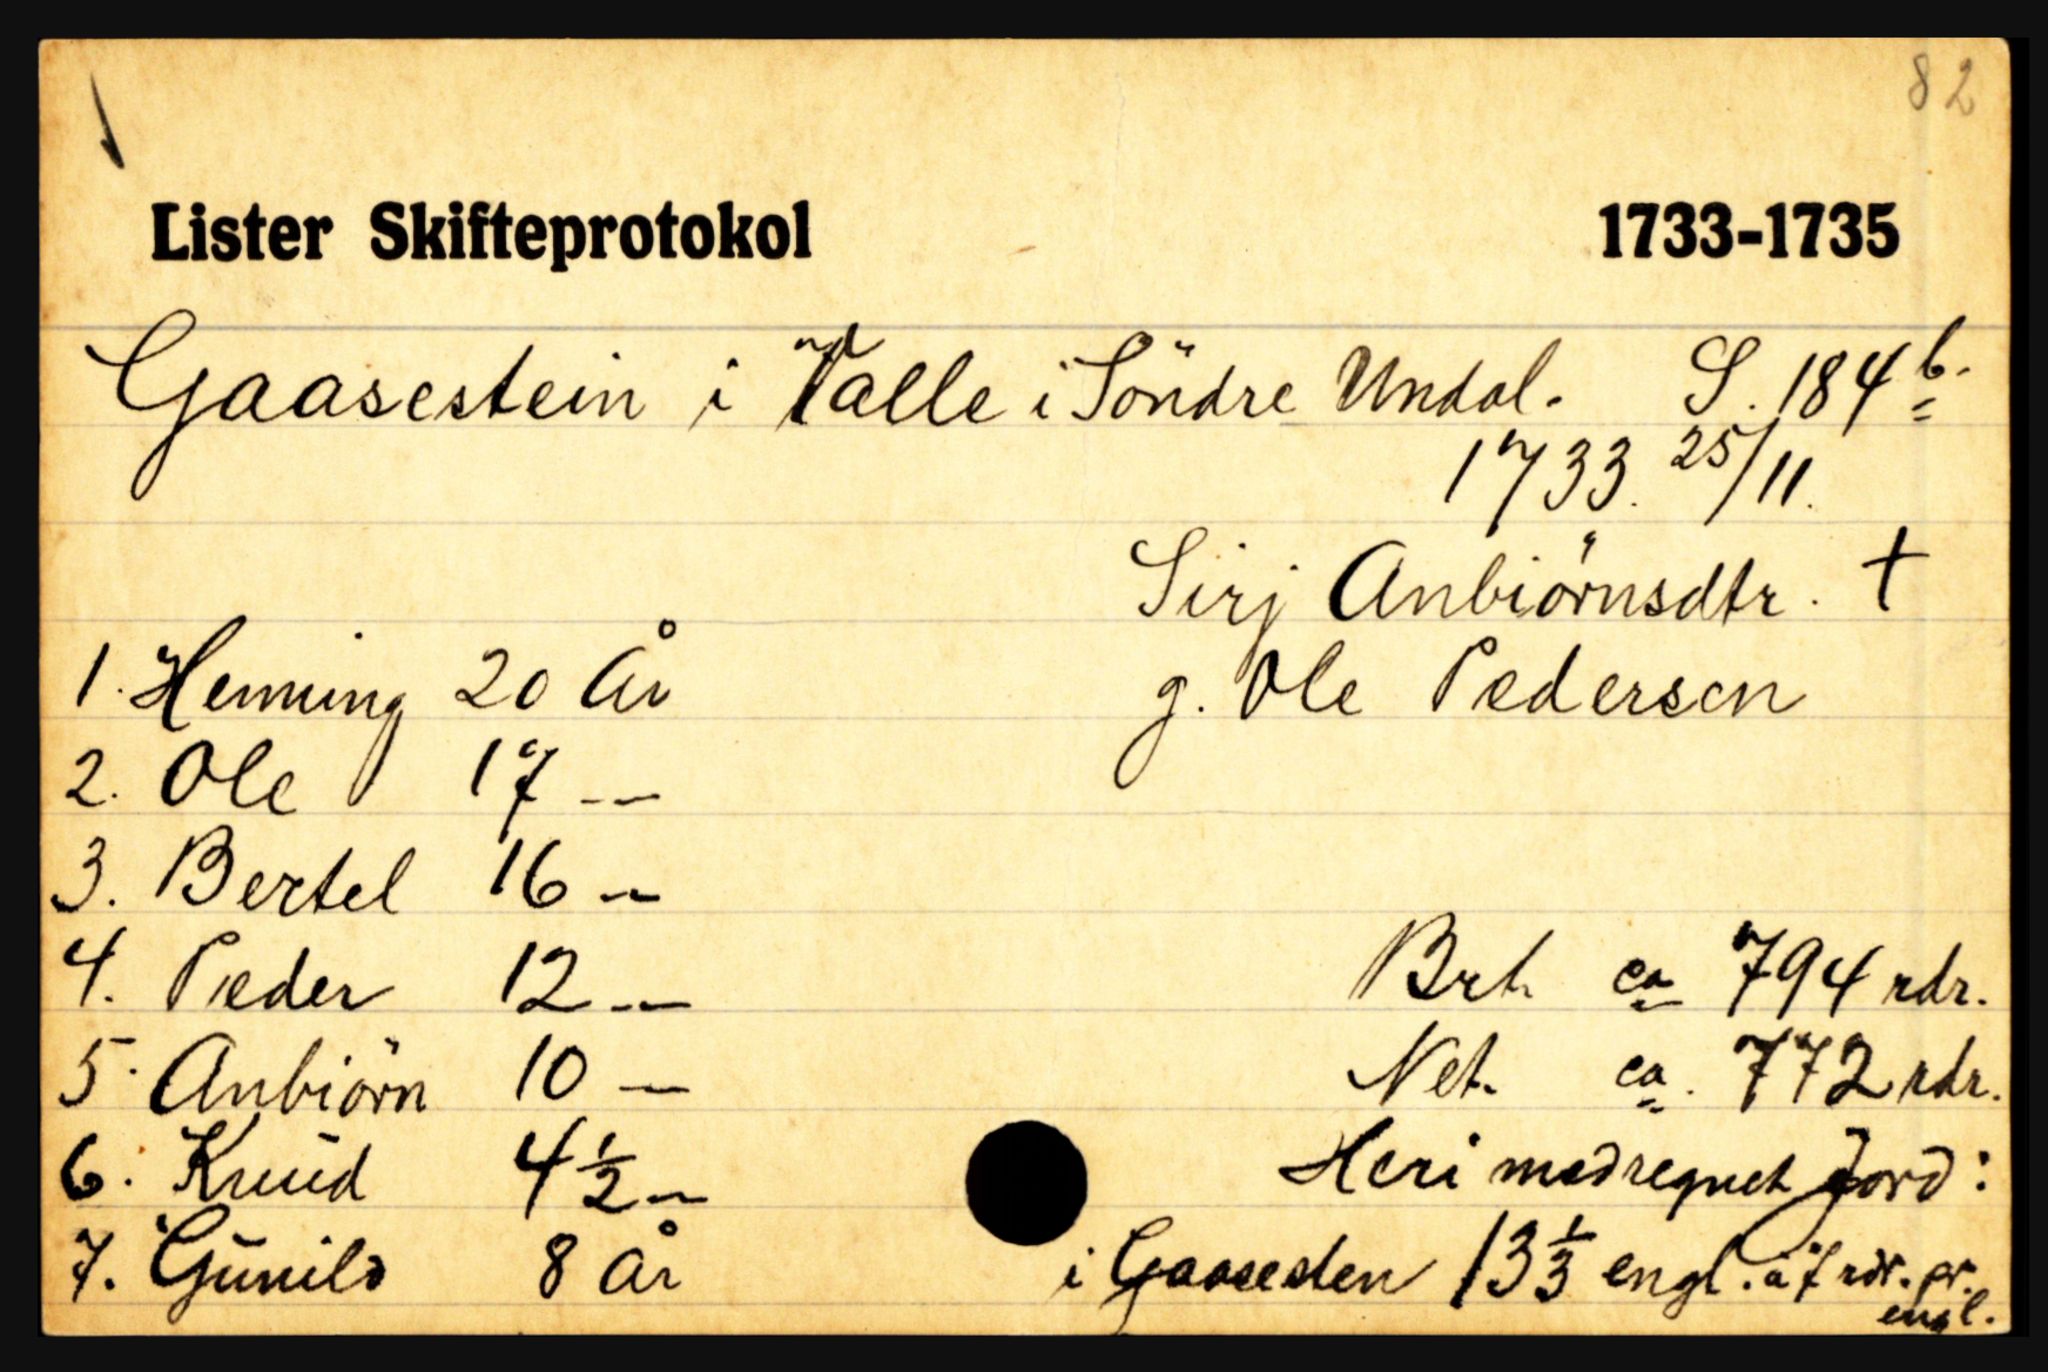 82
Lister Skifteprotokol 1733-1735
Gaasestein i Valle i Söndre Undal. S. 184 b.
1733. 25/11.
Sirj Anbiörnsdtr. †
g. Ole Pedersen
1. Henning 20 År
2. Ole 17 --
3. Bertel 16 --
4. Peder 12 --
5. Anbiörn 10 --
6. Knud 4 1/2 --
7. Gunild 8 år
Brt. ca 794 rdr.
Net. ca. 772 rdr.
Heri medregnet Jord:
i Gaasesten 13 1/3 engl. à 7 rdr. pr.
engl.